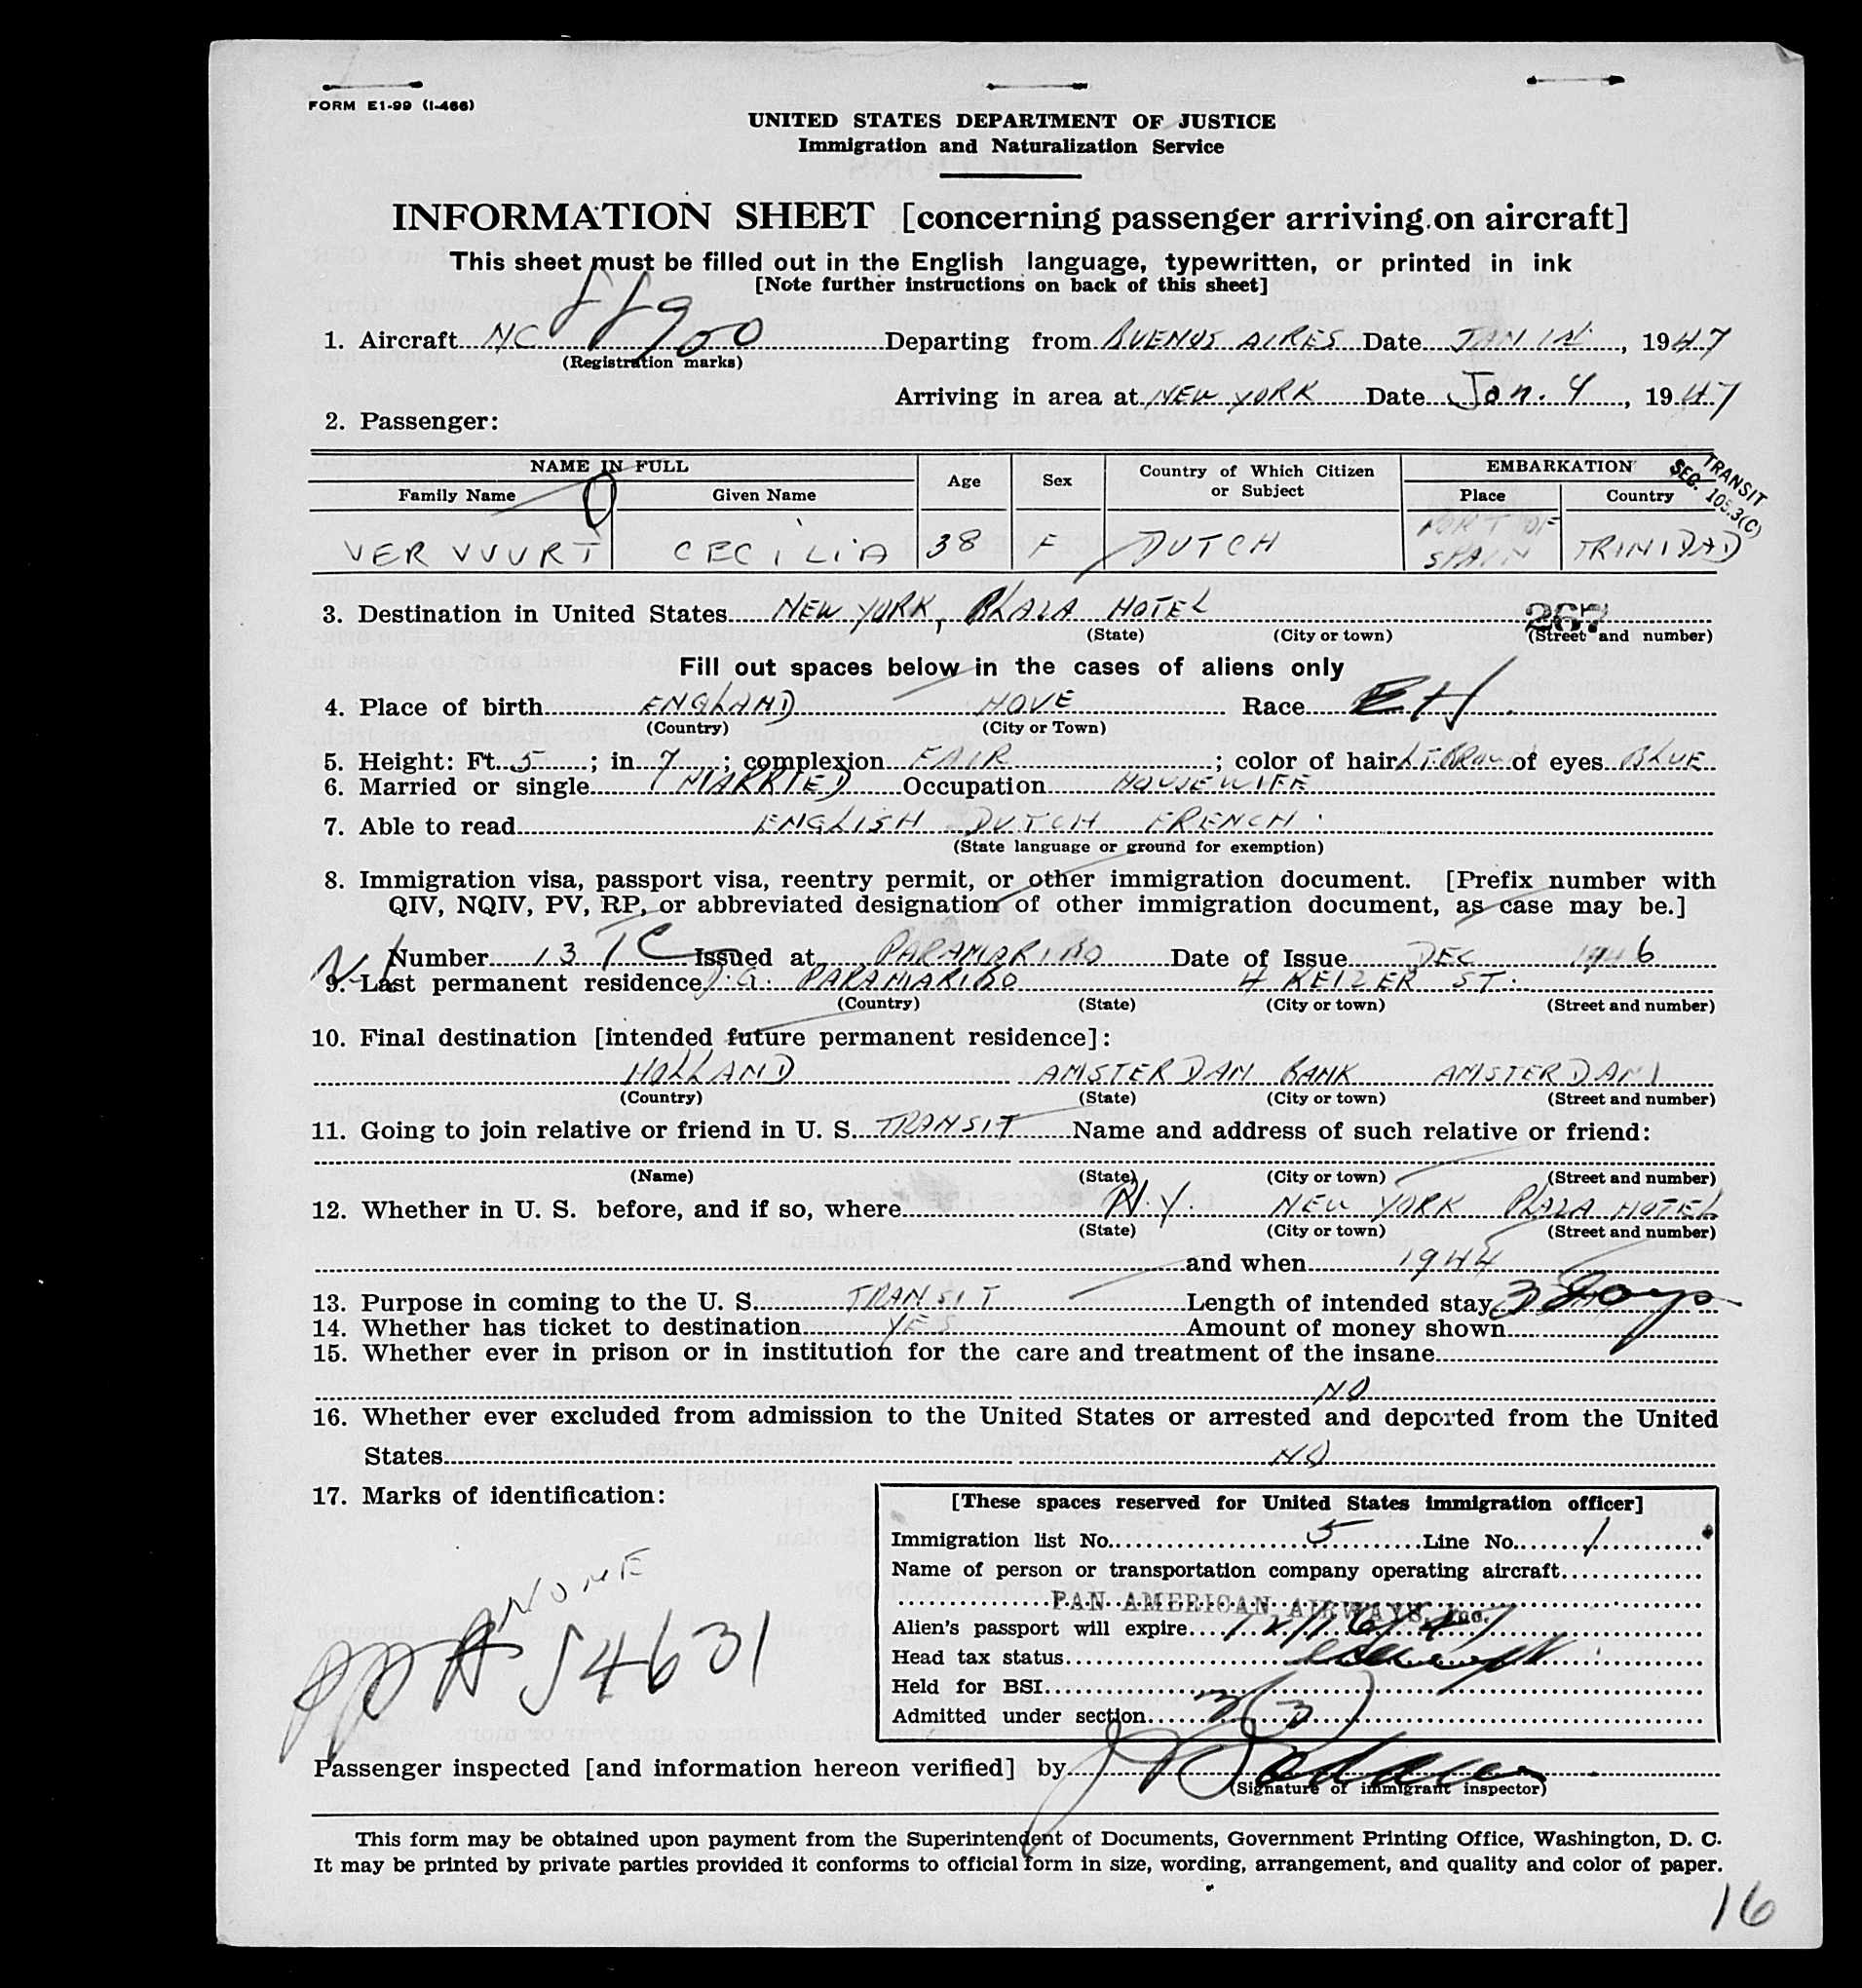 FORM E1-99 (I-466)
UNITED STATES DEPARTMENT OF JUSTICE
Immigration and Naturalization Service
INFORMATION SHEET [concerning passenger arriving on aircraft]
This sheet must be filled out in the English language, typewritten, or printed in ink
[Note further instructions on back of this sheet]
1. Aircraft NC 88900 Departing from BUENOS AIRES Date JAN , 1947
(Registration marks)
Arriving in area at NEW YORK Date Jan. 4, 1947
2. Passenger:
NAME IN FULL Age Sex Country of Which Citizen or Subject EMBARKATION
Family Name Given Name Place Country
TRANSIT
SEC. 105.3(C)
VERVUURT CECILIA 38 F DUTCH PORT OF SPAIN TRINIDAD
3. Destination in United States NEW YORK, PLAZA HOTEL 267
(State) (City or town) (Street and number)
Fill out spaces below in the cases of aliens only
4. Place of birth ENGLAND HOVE Race
(Country) (City or Town)
5. Height: Ft. 5; in. 7; complexion FAIR; color of hair LT. BROWN of eyes BLUE
6. Married or single MARRIED Occupation HOUSEWIFE
7. Able to read ENGLISH DUTCH FRENCH
(State language or ground for exemption)
8. Immigration visa, passport visa, reentry permit, or other immigration document. [Prefix number with
QIV, NQIV, PV, RP, or abbreviated designation of other immigration document, as case may be.]
Number 13 TC Issued at PARAMARIBO Date of Issue DEC 1946
9. Last permanent residence D.G. PARAMARIBO 4 KEIZER ST.
(Country) (State) (City or town) (Street and number)
10. Final destination [intended future permanent residence]:
HOLLAND AMSTERDAM BANK AMSTERDAM
(Country) (State) (City or town) (Street and number)
11. Going to join relative or friend in U. S. TRANSIT Name and address of such relative or friend:
(Name) (State) (City or town) (Street and number)
12. Whether in U. S. before, and if so, where N.Y. NEW YORK PLAZA HOTEL
(State) (City or town) (Street and number)
and when 1944
13. Purpose in coming to the U. S. TRANSIT Length of intended stay 3 Days
14. Whether has ticket to destination YES Amount of money shown
15. Whether ever in prison or in institution for the care and treatment of the insane
NO
16. Whether ever excluded from admission to the United States or arrested and deported from the United
States NO
17. Marks of identification:
NONE
PP A 54631
[These spaces reserved for United States immigration officer]
Immigration list No. 5 Line No. 1
Name of person or transportation company operating aircraft
PAN AMERICAN AIRWAYS, Inc.
Alien's passport will expire 12/16/47
Head tax status
Held for BSI
Admitted under section 3(3)
Passenger inspected [and information hereon verified] by
(Signature of immigrant inspector)
This form may be obtained upon payment from the Superintendent of Documents, Government Printing Office, Washington, D. C.
It may be printed by private parties provided it conforms to official form in size, wording, arrangement, and quality and color of paper.
16